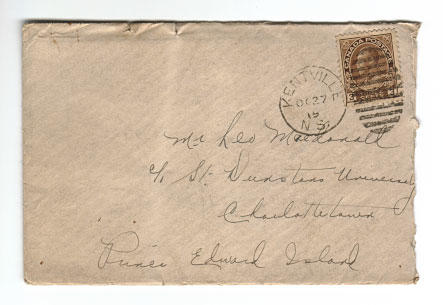 CANADA POSTAGE
KENTVILLE
OC 27
N.S.
Mr Leo Macdonald
c/o St. Dunstans University
Charlottetown
Prince Edward Island